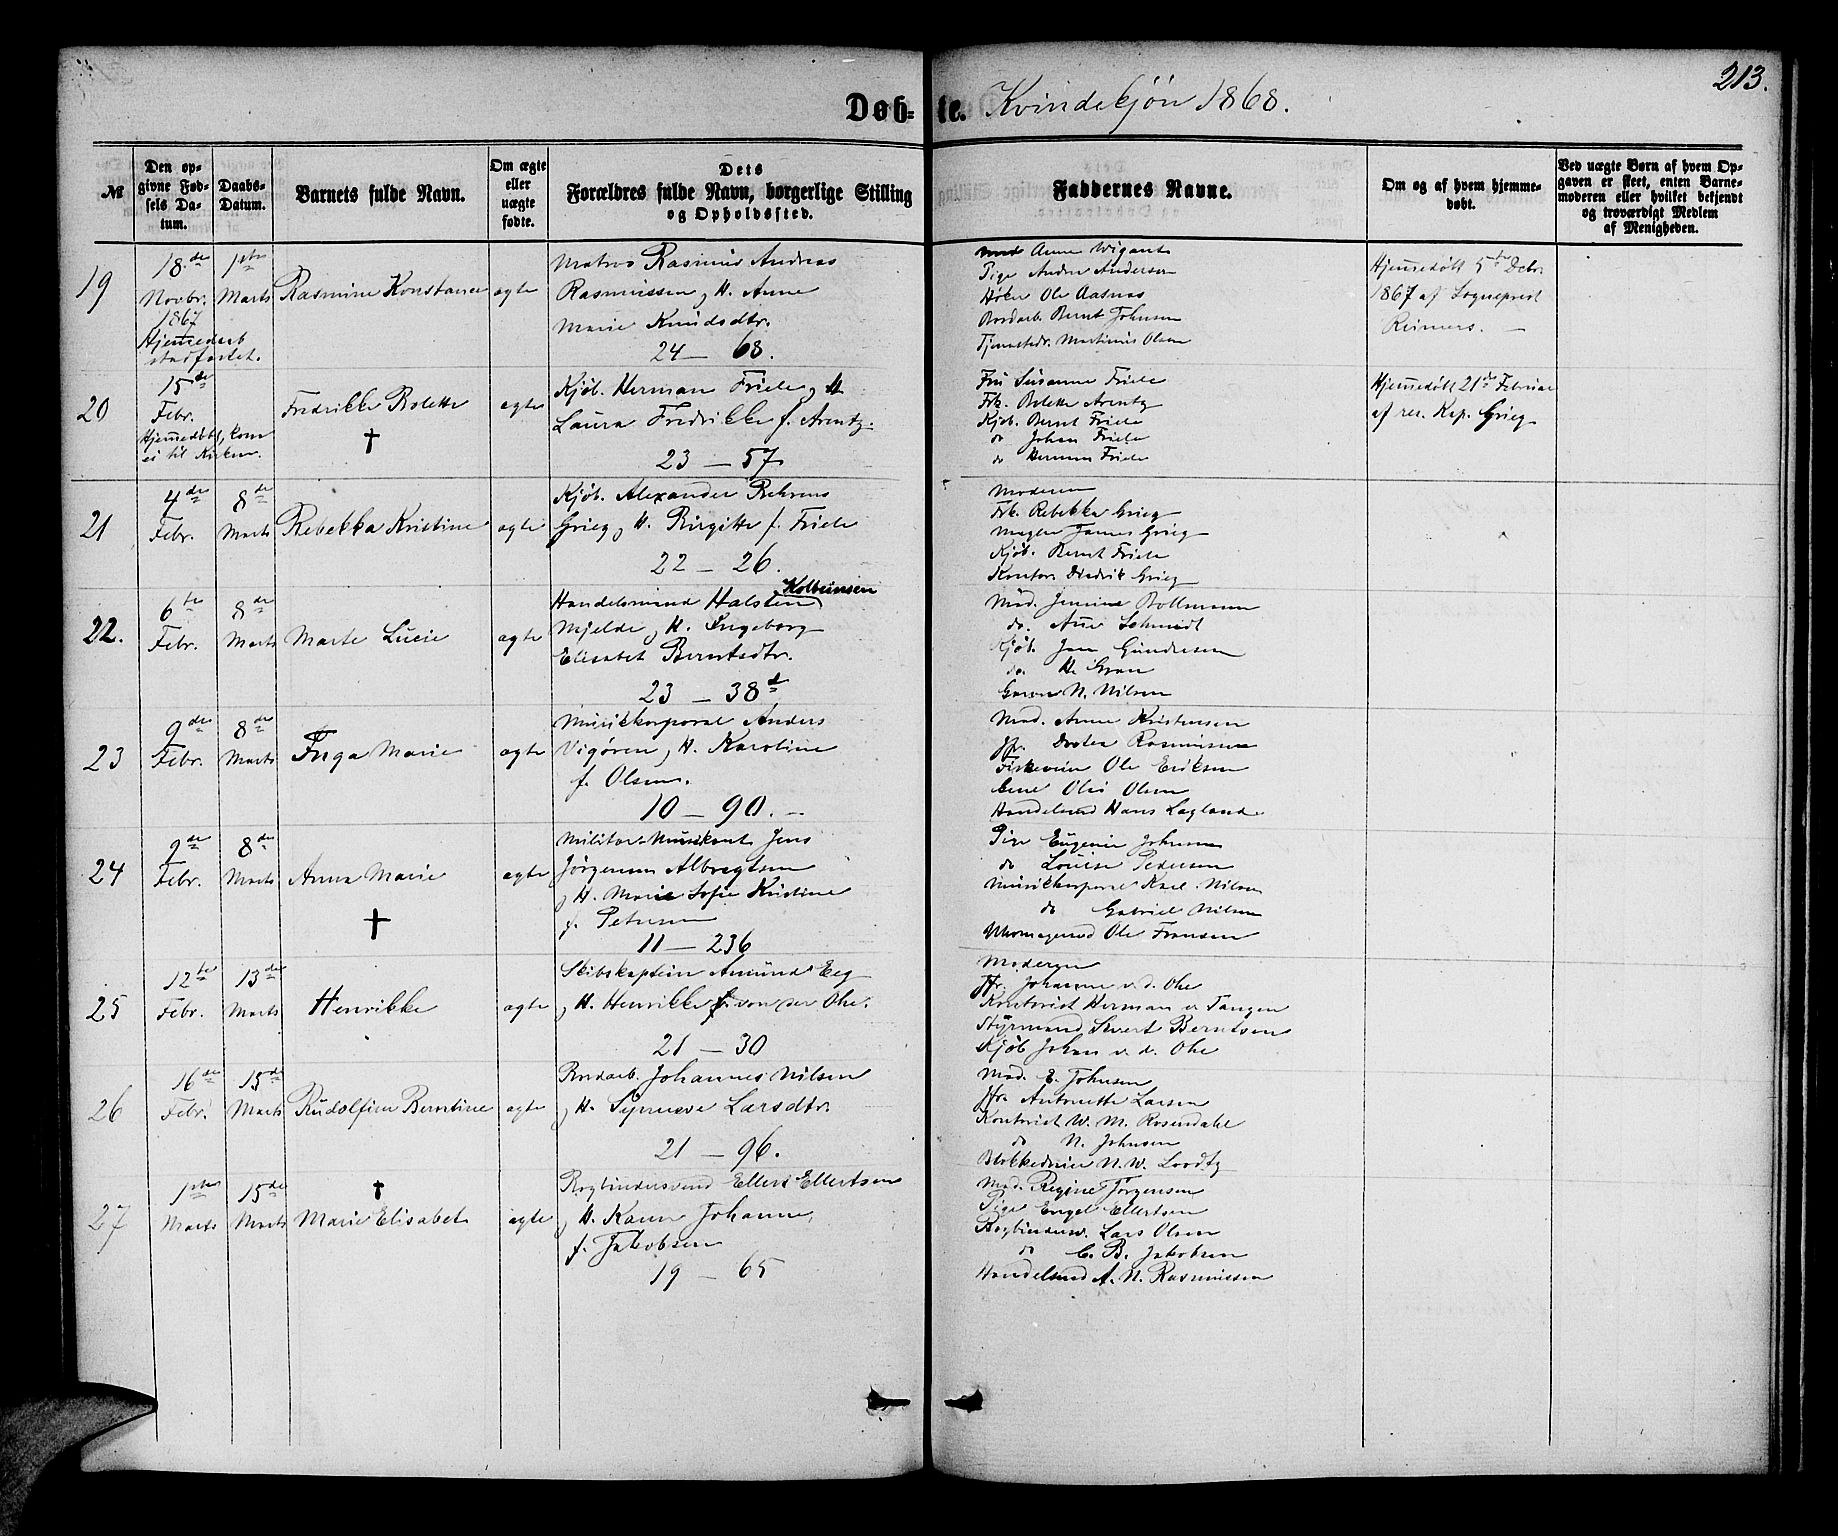 213.
Døb- te. Kvindekjön 1868.
№
Den op-
givne Fød-
sels Da-
tum.
Daabs-
Datum.
Barnets fulde Navn.
Om ægte
eller
uægte
fødte.
Dets
Forældres fulde Navn, borgerlige Stilling
og Opholdssted.
Faddernes Navne.
Om og af hvem hjemme-
døbt.
Ved uægte Børn af hvem Op-
gaven er skeet, enten Barne-
moderen eller hvilket bekjendt
og troværdigt Medlem
af Menigheden.
19
18de
Novbr.
1867
Hjemmedaab
stadfæstet.
1ste
Marts
Rasmine Konstance
ægte
Matros Rasmus Andreas
Rasmussen og H. Anne
Marie Knudsdtr.
24 — 68.
Mad Anne Wigant
Pige Andrea Andersen
Høker Ole Aasnæs
Bordarb. Bernt Johnsen
Tjenestedr. Martinus Olsen
Hjemmedøbt 5te Debr.
1867 af Sognepræst
Reimers. —
20
15de
Febr.
Hjemmedøbt, kom
ei til Kirken.
Fredrikke Bolette
†
ægte
Kjøb. Herman Friele og H
Laura Fredrikke f. Arentz.
23 — 57
Fru Susanne Friele
Frk. Bolette Arentz
Kjøb. Bernt Friele
do Johan Friele
do Herman Friele
Hjemmedøbt 21de Februar
af res. Kap. Grieg
21
4de
Febr.
8de
Marts
Rebekka Kristine
ægte
Kjøb. Alexander Behrens
Grieg og H. Birgitte f. Friele
22 — 26.
Moderen
Frk. Rebekka Grieg
Mægler James Grieg
Kjøb. Bernt Friele
Kontor. Didrik Grieg
22.
6te
Febr.
8de
Marts
Marte Lucie
ægte
Kolbeinsen
Handelsmand Halsten
Mjelde og H. Ingeborg
Elisabet Berntsdtr.
23 — 38d
Mad. Jemine Bollmann
do. Schmidt
Kjøb. Jan Gundersen
do. H. Gran
Garver N. Nilsen
23
9de
Febr.
8de
Marts
Inga Marie
ægte
Musikkorporal Anders
Vigøren og H. Karoline
f. Olsen.
10 — 90. —
Mad. Anne Kristensen
Jfr. Dortea Rasmussen
Ole Eriksen
Olai Olsen
Handelsmd Hans Lagland
24
9de
Febr.
8de
Marts
Anna Marie
†
ægte
Militær-Musikant Jens
Jørgensen Albregtsen
og H. Marie Sofie Kristine
f. Petersen
11 — 236
Pige Eugenie Johnsen
do Louise Pedersen
Musikkorporal Karl Nilsen
do Gabriel Nilsen
Uhrmagersvd Ole Fransen
25
12te
Febr.
13de
Marts
Henrikke
ægte
Skibskaptein Amund Eeg
og H. Henrikke f. von der Ohe.
21 — 30
Moderen
Jfr. Johanne v. d. Ohe
Kontorist Herman v Tangen
Styrmand Sivert Berntsen
Kjøb Johan v. d. Ohe
26
16de
Febr.
15de
Marts
Rudolfine Berntine
ægte
Bordarb. Johannes Nilsen
og H. Synneve Larsdtr.
21 — 96.
Mad. E. Johnsen
Jfr. Antonette Larsen
Kontorist W. M. Rosendahl
do N. Johnsen
Blokkedreier N. W. Loodtz
27
1ste
Marts
15de
Marts
†
Marie Elisabet
ægte
Bogbindersvend Ellert Ellertsen
og H. Karen Johanne
f. Jakobsen
19 — 65
Mad. Regine Jørgensen
Pige Engel Ellertsen
Bogbindersv. Lars Olsen
do C. B. Jakobsen
Handelsmd A. N. Rasmussen